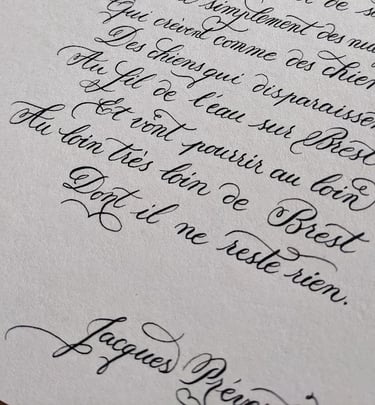 simplement des nua
Qui crèvent comme des chien
Des chiens qui disparaisse
Au fil de l'eau sur Brest
Et vont pourrir au loin
Au loin très loin de Brest
Dont il ne reste rien.
Jacques Préve